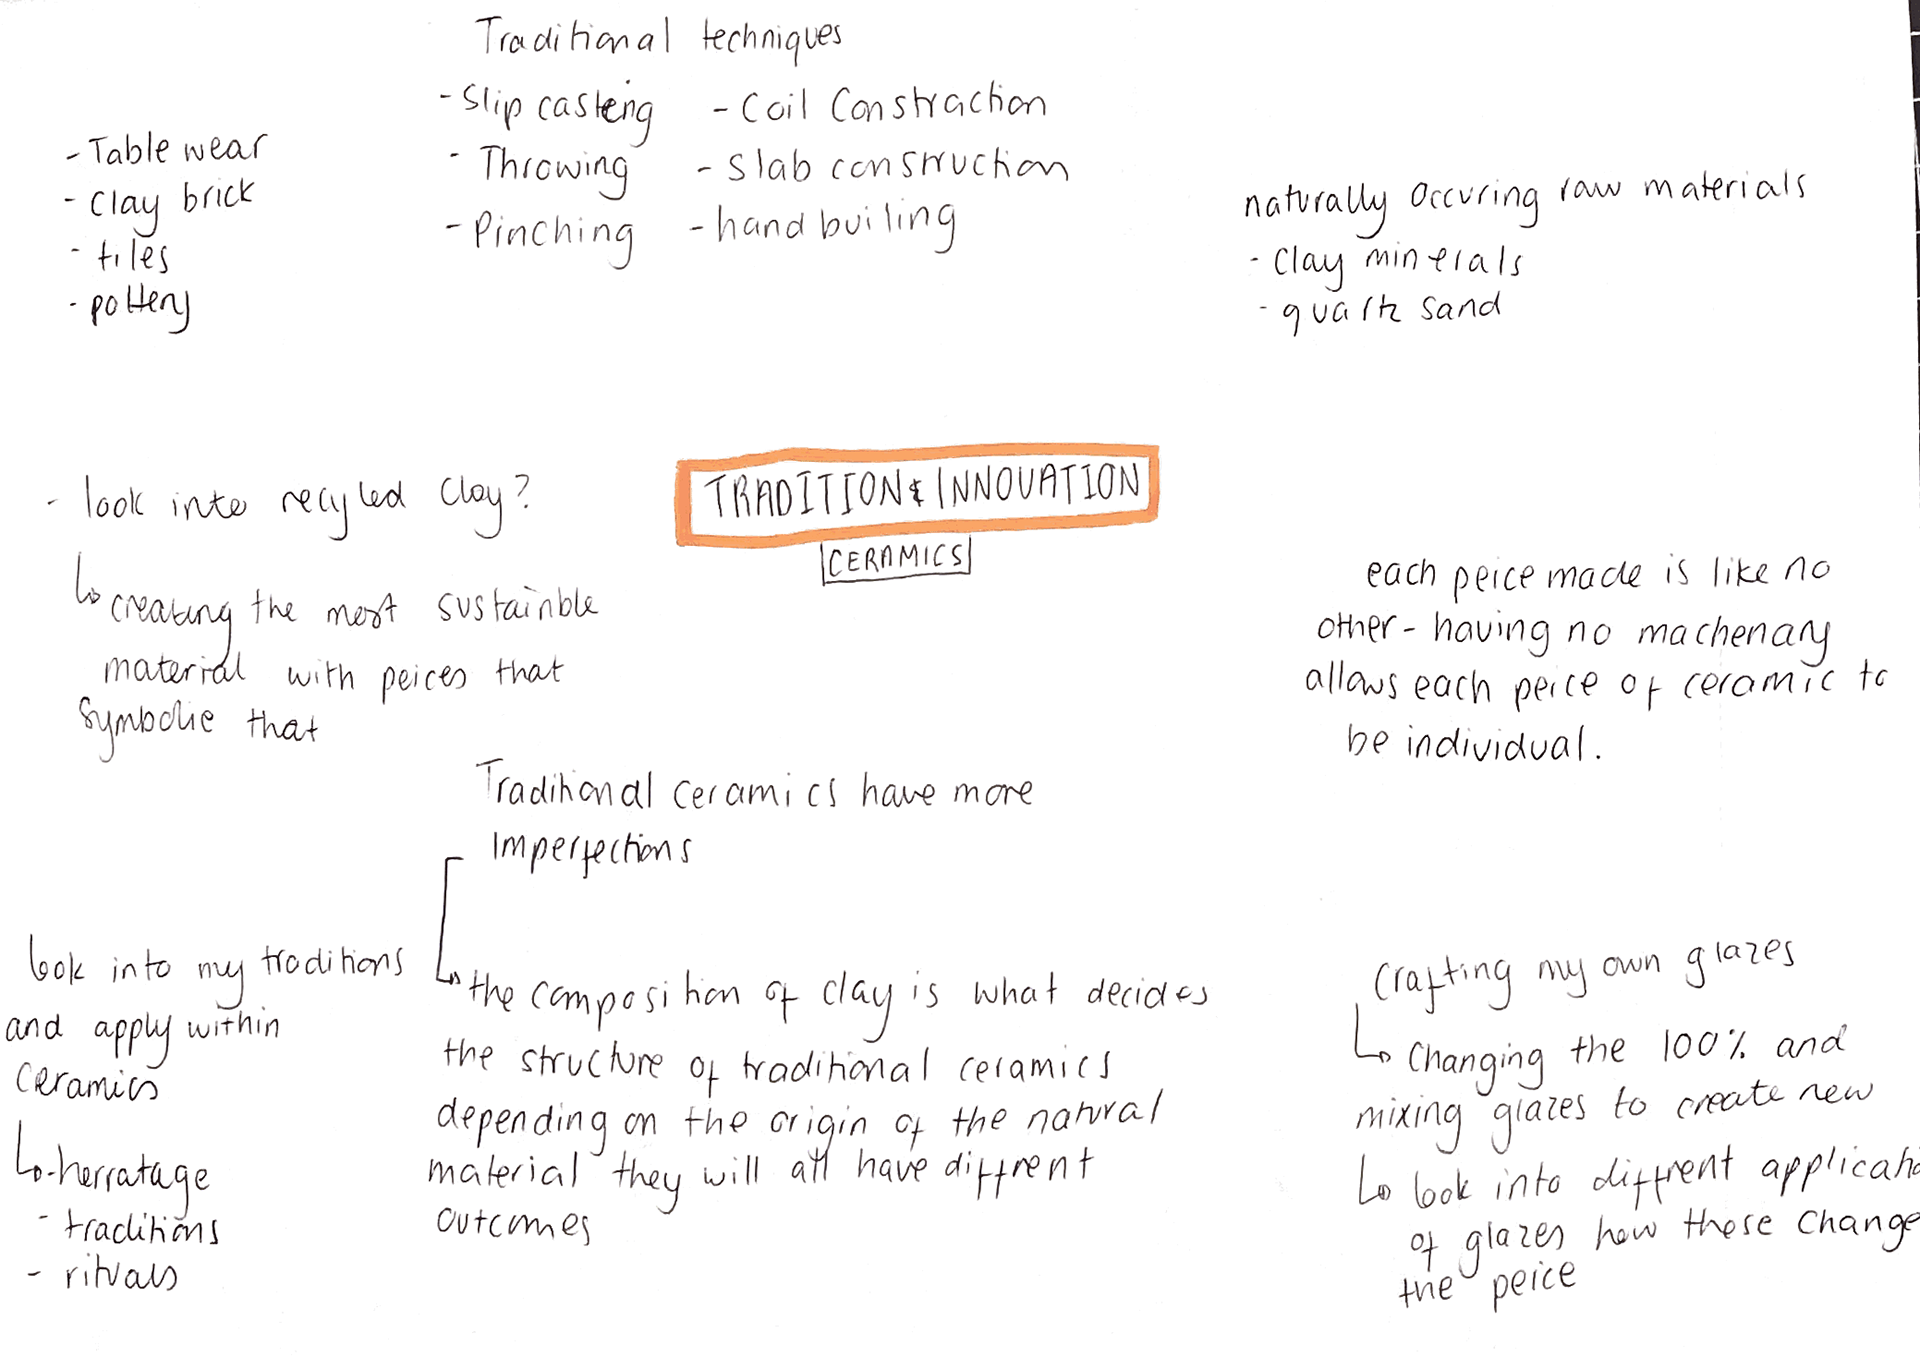 Traditional techniques
- Slip casteing
- Throwing
- Pinching
- Coil Constraction
- Slab construction
- hand builing
- Table wear
- Clay brick
- tiles
- pottery
naturally occuring raw materials
- Clay minerals
- quartz sand
TRADITION & INNOVATION
CERAMICS
- look into recyled clay?
creating the most sustainble
material with peices that
symbolie that
each peice made is like no
other - having no machenary
allows each peice of ceramic to
be individual.
Traditional ceramics have more
Imperfections
the composition of clay is what decides
the structure of traditional ceramics
depending on the origin of the natural
material they will all have diffrent
outcomes
look into my traditions
and apply within
ceramics
- herratage
- traditions
- rituals
Crafting my own glazes
Changing the 100% and
mixing glazes to create new
look into diffrent applicati
of glazes how these change
the peice